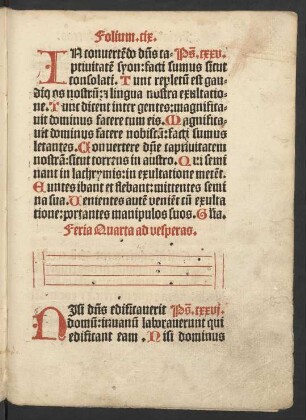 Folium. cix.
IN conuertēdo dn̄s ca- Ps. cxxv.
ptiuitatē syon: facti sumus sicut
consolati. Tunc repletū est gau-
dio os nostrū: ⁊ lingua nostra exultatio-
ne. Tunc dicent inter gentes: magnifica-
uit dominus facere cum eis. Magnifica-
uit dominus facere nobiscū: facti sumus
letantes. Conuertere dn̄e captiuitatem
nostrā: sicut torrens in austro. Qui semi
nant in lachrymis: in exultatione metēt.
Euntes ibant et flebant: mittentes semi
na sua. Uenientes autē veniēt cū exulta
tione: portantes manipulos suos. Glīa.
Feria Quarta ad vesperas.
NIsi dn̄s edificauerit Ps. cxxvj.
domū: in uanū laborauerunt qui
edificant eam. Nisi dominus